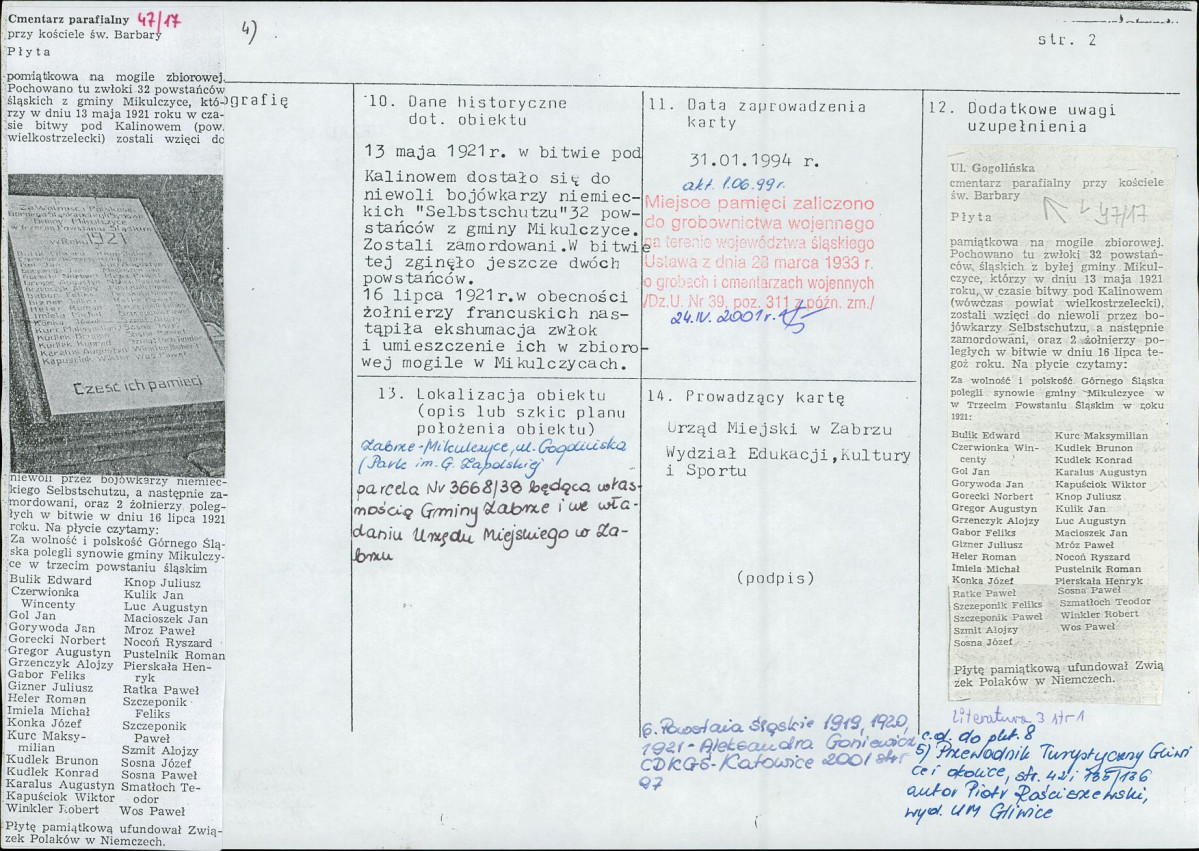 Cmentarz parafialny 47/17
przy kościele św. Barbary
Płyta
pomiątkowa na mogile zbiorowej.
Pochowano tu zwłoki 32 powstańców
śląskich z gminy Mikulczyce, któ-
rzy w dniu 13 maja 1921 roku w cza-
sie bitwy pod Kalinowem (pow.
wielkostrzelecki) zostali wzięci do
1921
Cześć ich pamięci
niewoli przez bojówkarzy niemiec-
kiego Selbstschutzu, a następnie za-
mordowani, oraz 2 żołnierzy poleg-
łych w bitwie w dniu 16 lipca 1921
roku. Na płycie czytamy:
Za wolność i polskość Górnego Ślą-
ska polegli synowie gminy Mikulczy-
ce w trzecim powstaniu śląskim
Bulik Edward
Czerwionka
Wincenty
Gol Jan
Gorywoda Jan
Gorecki Norbert
Gregor Augustyn
Grzenczyk Alojzy
Gabor Feliks
Gizner Juliusz
Heler Roman
Imiela Michał
Konka Józef
Kurc Maksy-
milian
Kudlek Brunon
Kudlek Konrad
Karalus Augustyn
Kapuściok Wiktor
Winkler Robert
Knop Juliusz
Kulik Jan
Luc Augustyn
Macioszek Jan
Mroz Paweł
Nocoń Ryszard
Pustelnik Roman
Pierskała Hen-
ryk
Ratka Paweł
Szczeponik
Feliks
Szczeponik
Paweł
Szmit Alojzy
Sosna Józef
Sosna Paweł
Smatłoch Te-
odor
Wos Paweł
Płytę pamiątkową ufundował Zwią-
zek Polaków w Niemczech.
4)
str. 2
ografię
10. Dane historyczne
dot. obiektu
13 maja 1921r. w bitwie pod
Kalinowem dostało się do
niewoli bojówkarzy niemiec-
kich "Selbstschutzu"32 pow-
stańców z gminy Mikulczyce.
Zostali zamordowani.W bitwie
tej zginęło jeszcze dwóch
powstańców.
16 lipca 1921r.w obecności
żołnierzy francuskich nas-
tąpiła ekshumacja zwłok
i umieszczenie ich w zbioro-
wej mogile w Mikulczycach.
11. Data zaprowadzenia
karty
31.01.1994 r.
akt. 1.06.99r.
Miejsce pamięci zaliczono
do grobownictwa wojennego
na terenie województwa śląskiego
Ustawa z dnia 28 marca 1933 r.
o grobach i cmentarzach wojennych
/Dz.U. Nr 39, poz. 311 z późn. zm./
24.IV.2001r.
12. Dodatkowe uwagi
uzupełnienia
Ul. Gogolińska
cmentarz parafialny przy kościele
św. Barbary
Płyta 47/17
pamiątkowa na mogile zbiorowej.
Pochowano tu zwłoki 32 powstań-
ców, śląskich z byłej gminy Mikul-
czyce, którzy w dniu 13 maja 1921
roku, w czasie bitwy pod Kalinowem
(wówczas powiat wielkostrzelecki),
zostali wzięci do niewoli przez bo-
jówkarzy Selbstschutzu, a następnie
zamordowani, oraz 2 żołnierzy po-
ległych w bitwie w dniu 16 lipca te-
goż roku. Na płycie czytamy:
Za wolność i polskość Górnego Śląska
polegli synowie gminy Mikulczyce w
w Trzecim Powstaniu Śląskim w roku
1921:
Bulik Edward
Czerwionka Win-
centy
Gol Jan
Gorywoda Jan
Gorecki Norbert
Gregor Augustyn
Grzenczyk Alojzy
Gabor Feliks
Gizner Juliusz
Heler Roman
Imiela Michał
Konka Józef
Ratke Paweł
Szczeponik Feliks
Szczeponik Paweł
Szmit Alojzy
Sosna Józef
Kurc Maksymilian
Kudlek Brunon
Kudlek Konrad
Karalus Augustyn
Kapuściok Wiktor
Knop Juliusz
Kulik Jan
Luc Augustyn
Macioszek Jan
Mróz Paweł
Nocoń Ryszard
Pustelnik Roman
Pierskała Henryk
Sosna Paweł
Szmatłoch Teodor
Winkler Robert
Wos Paweł
Płytę pamiątkową ufundował Zwią
zek Polaków w Niemczech.
13. Lokalizacja obiektu
(opis lub szkic planu
położenia obiektu)
Zabrze-Mikulczyce, ul. Gogolińska
(Park im. G. Zapolskiej
parcela Nr 3668/38 będąca włas-
nością Gminy Zabrze i we wła-
daniu Urzędu Miejskiego w Za-
brzu
14. Prowadzący kartę
Urząd Miejski w Zabrzu
Wydział Edukacji,Kultury
i Sportu
(podpis)
6. Powstania Śląskie 1919, 1920,
1921 - Aleksandra Goniewicz
CDKGŚ-Katowice 2001 str
97
Literatura 3 str 1
c.d. do pkt. 8
5) Przewodnik Turystyczny Gliwi
ce i okolice, str. 42 i 135/136
autor Piotr Rościszewski,
wyd. UM Gliwice